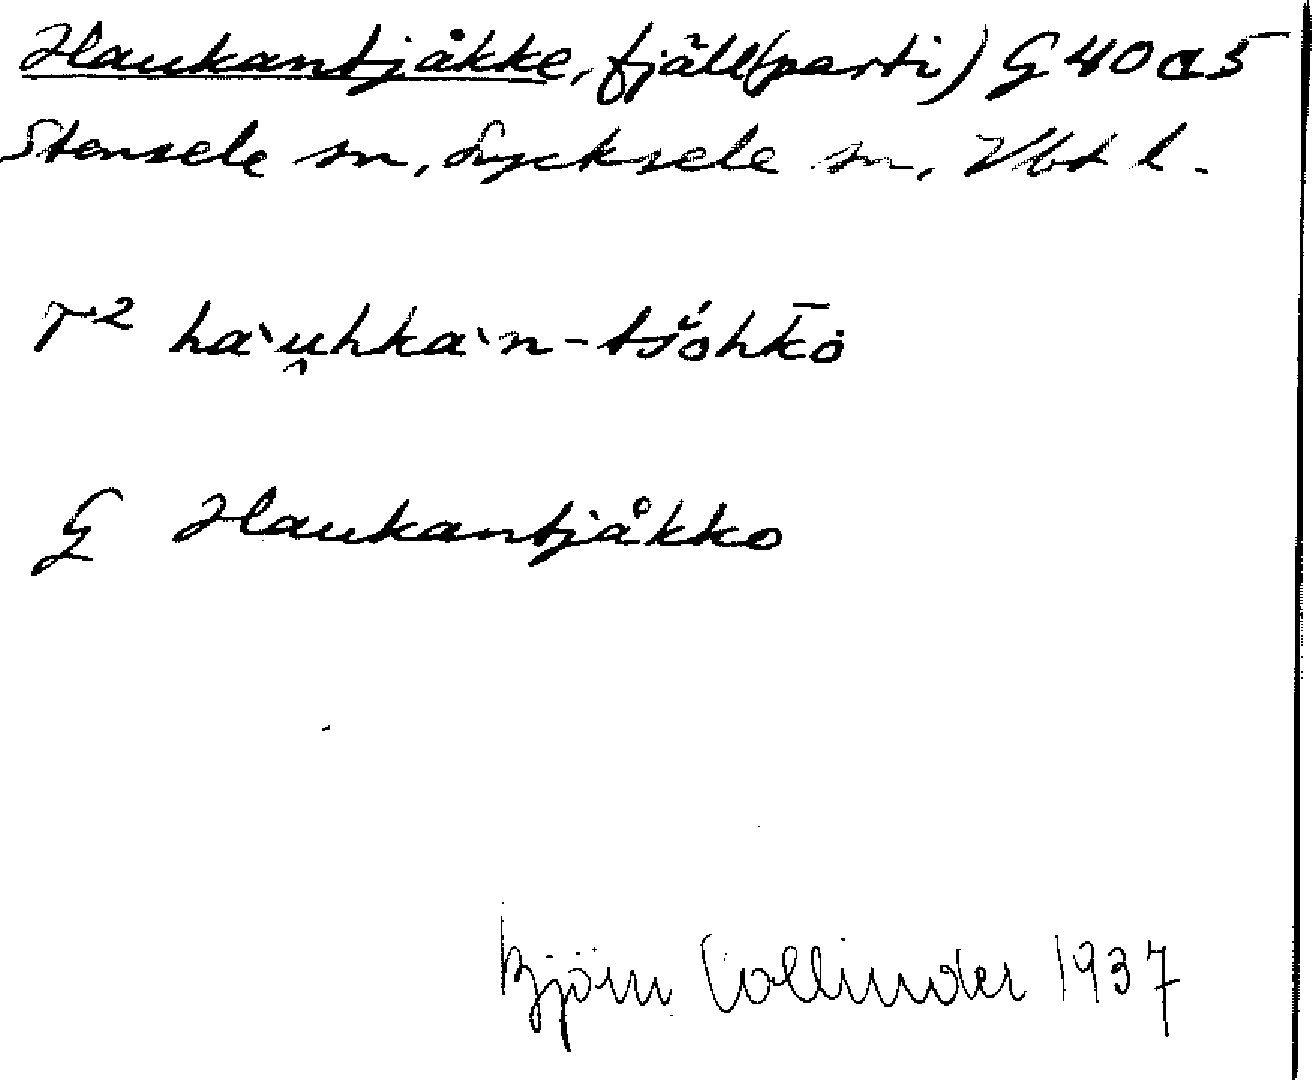 Haukantjåkke, fjäll(parti) G 40 a 5
Stensele sn, Lycksele sn, Vbt l.
T² ha`u̯hka`n-tšŏ́hk̄ȯ
G Haukantjåkko
Björn Collinder 1937